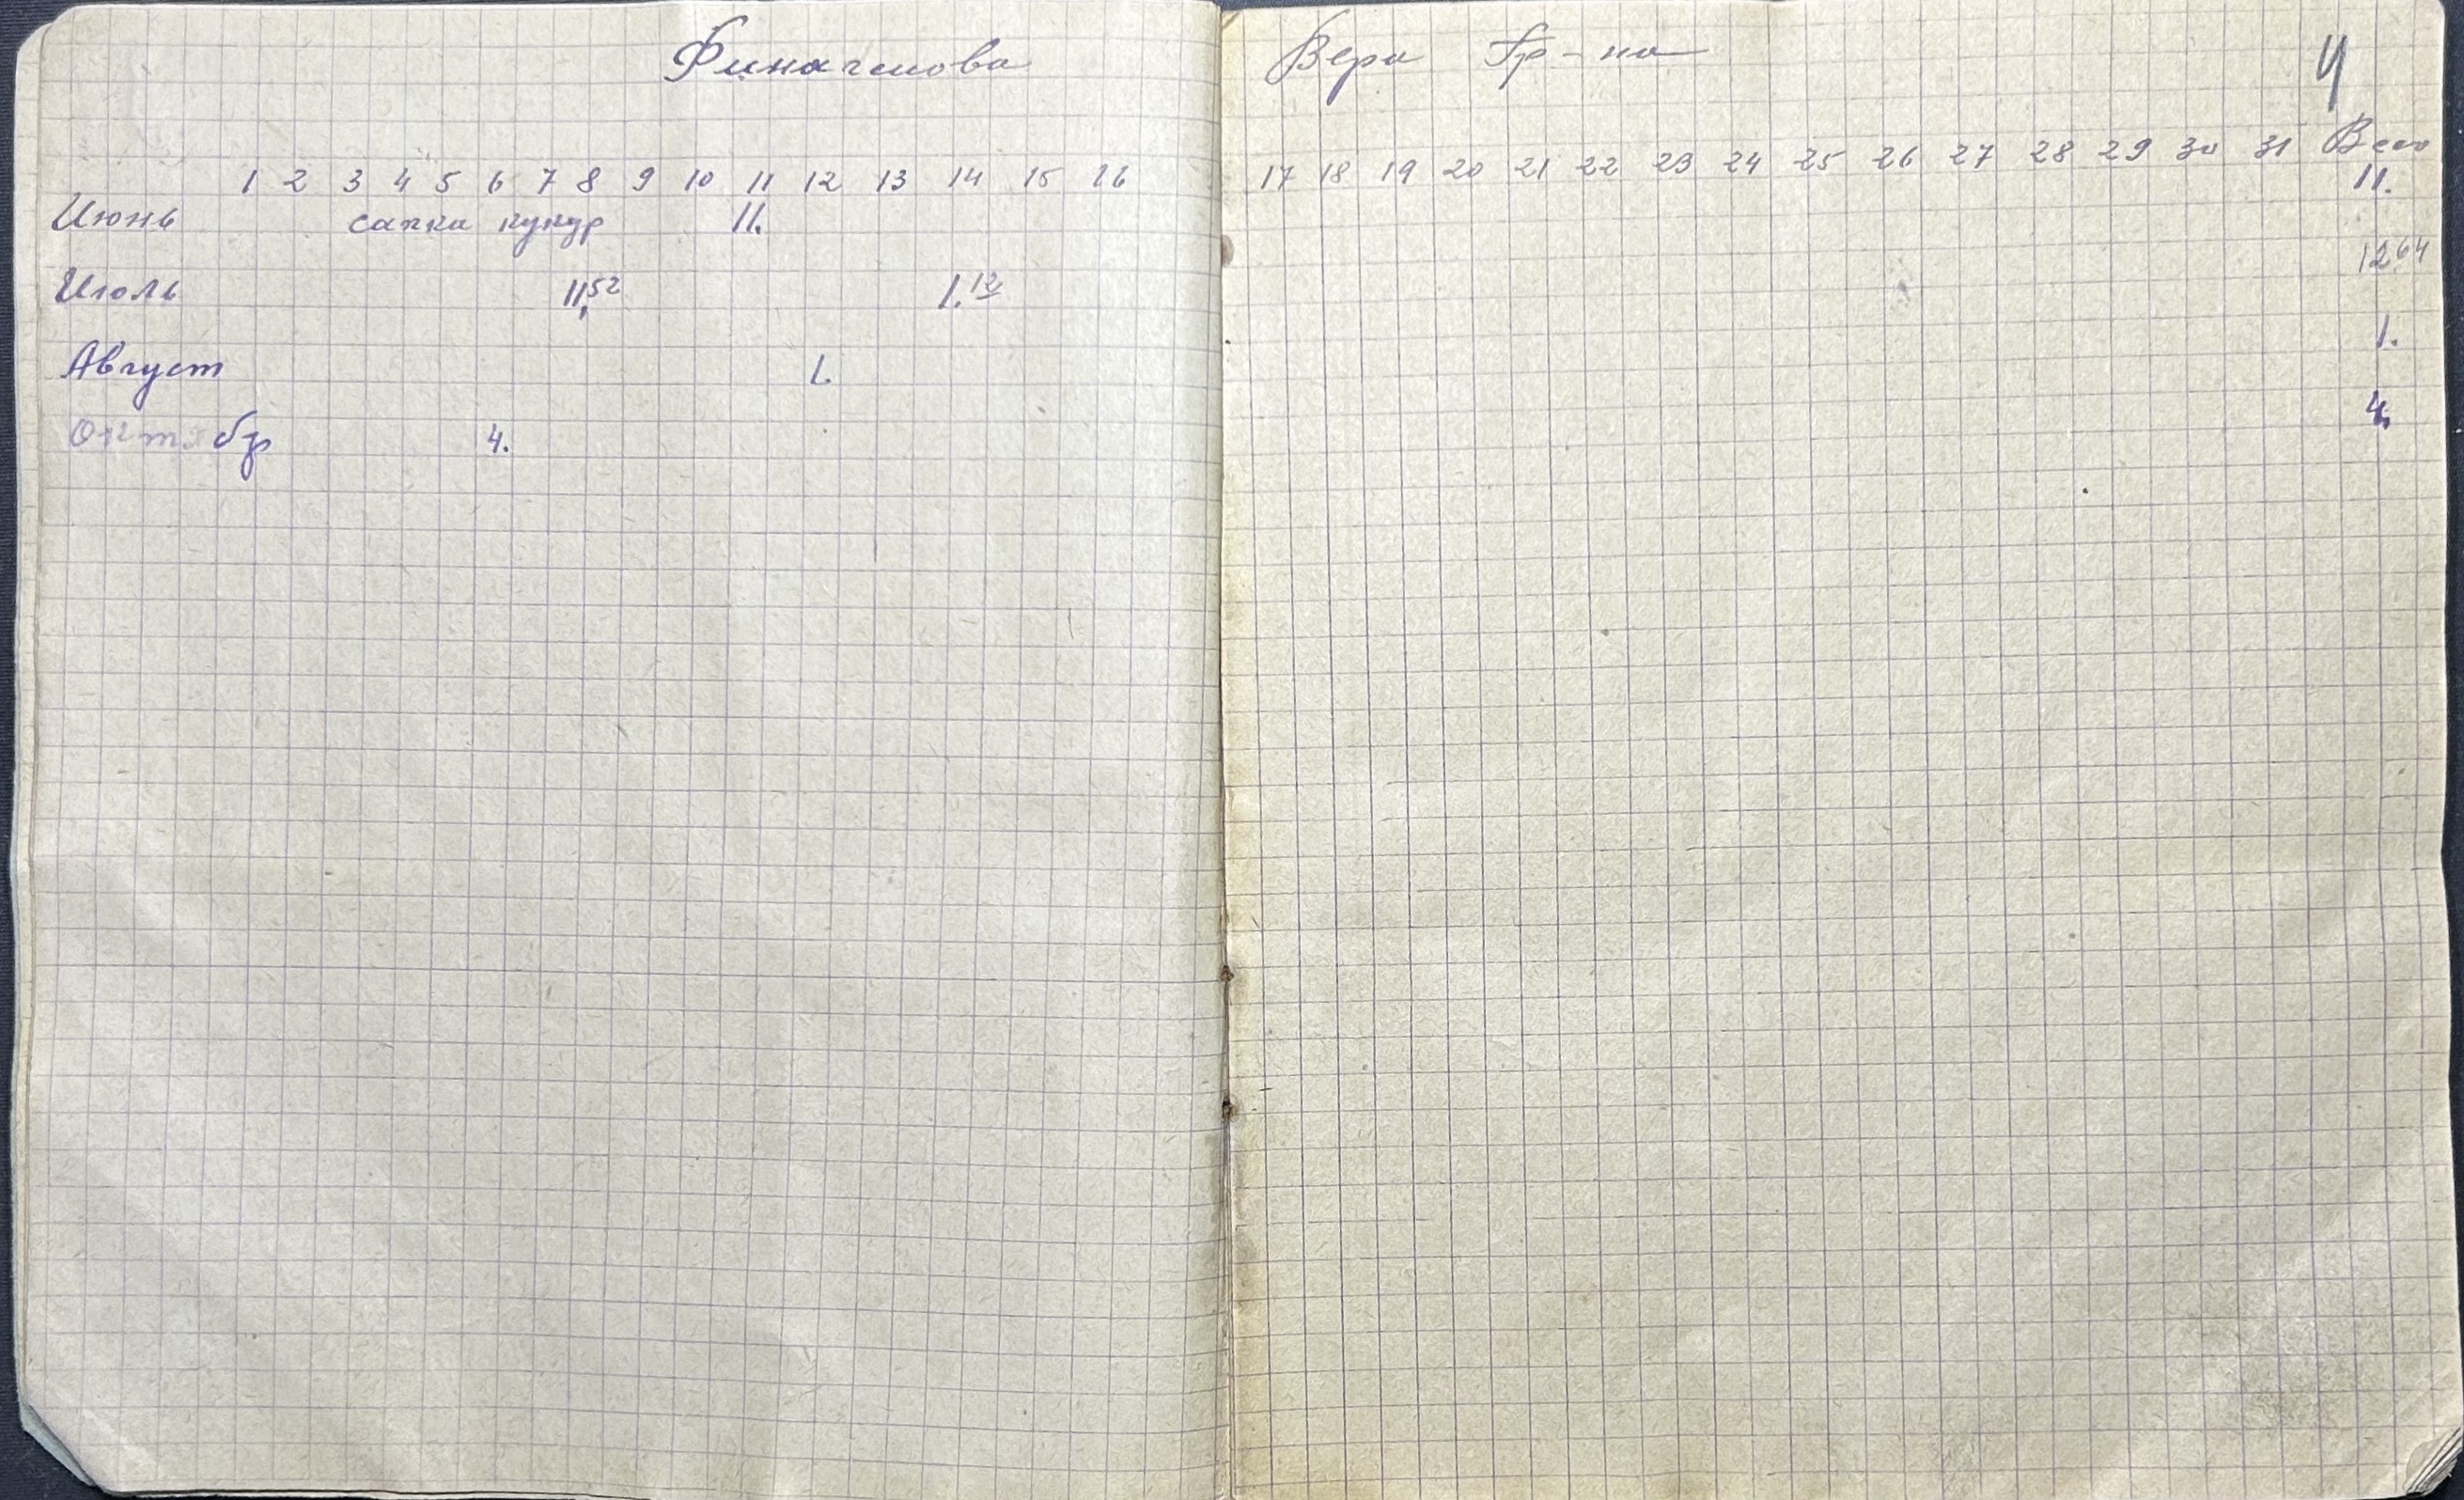 Вера Гр-на 4
1 2 3 4 5 6 7 8 9 10 11 12 13 14 15 16 17 18 19 20 21 22 23 24 25 26 27 28 29 30 31 Всего
Июнь сапка кукур 11. 11.
Июль 11,52 1.12 1264
Август 1. 1.
Октябр 4. 4.